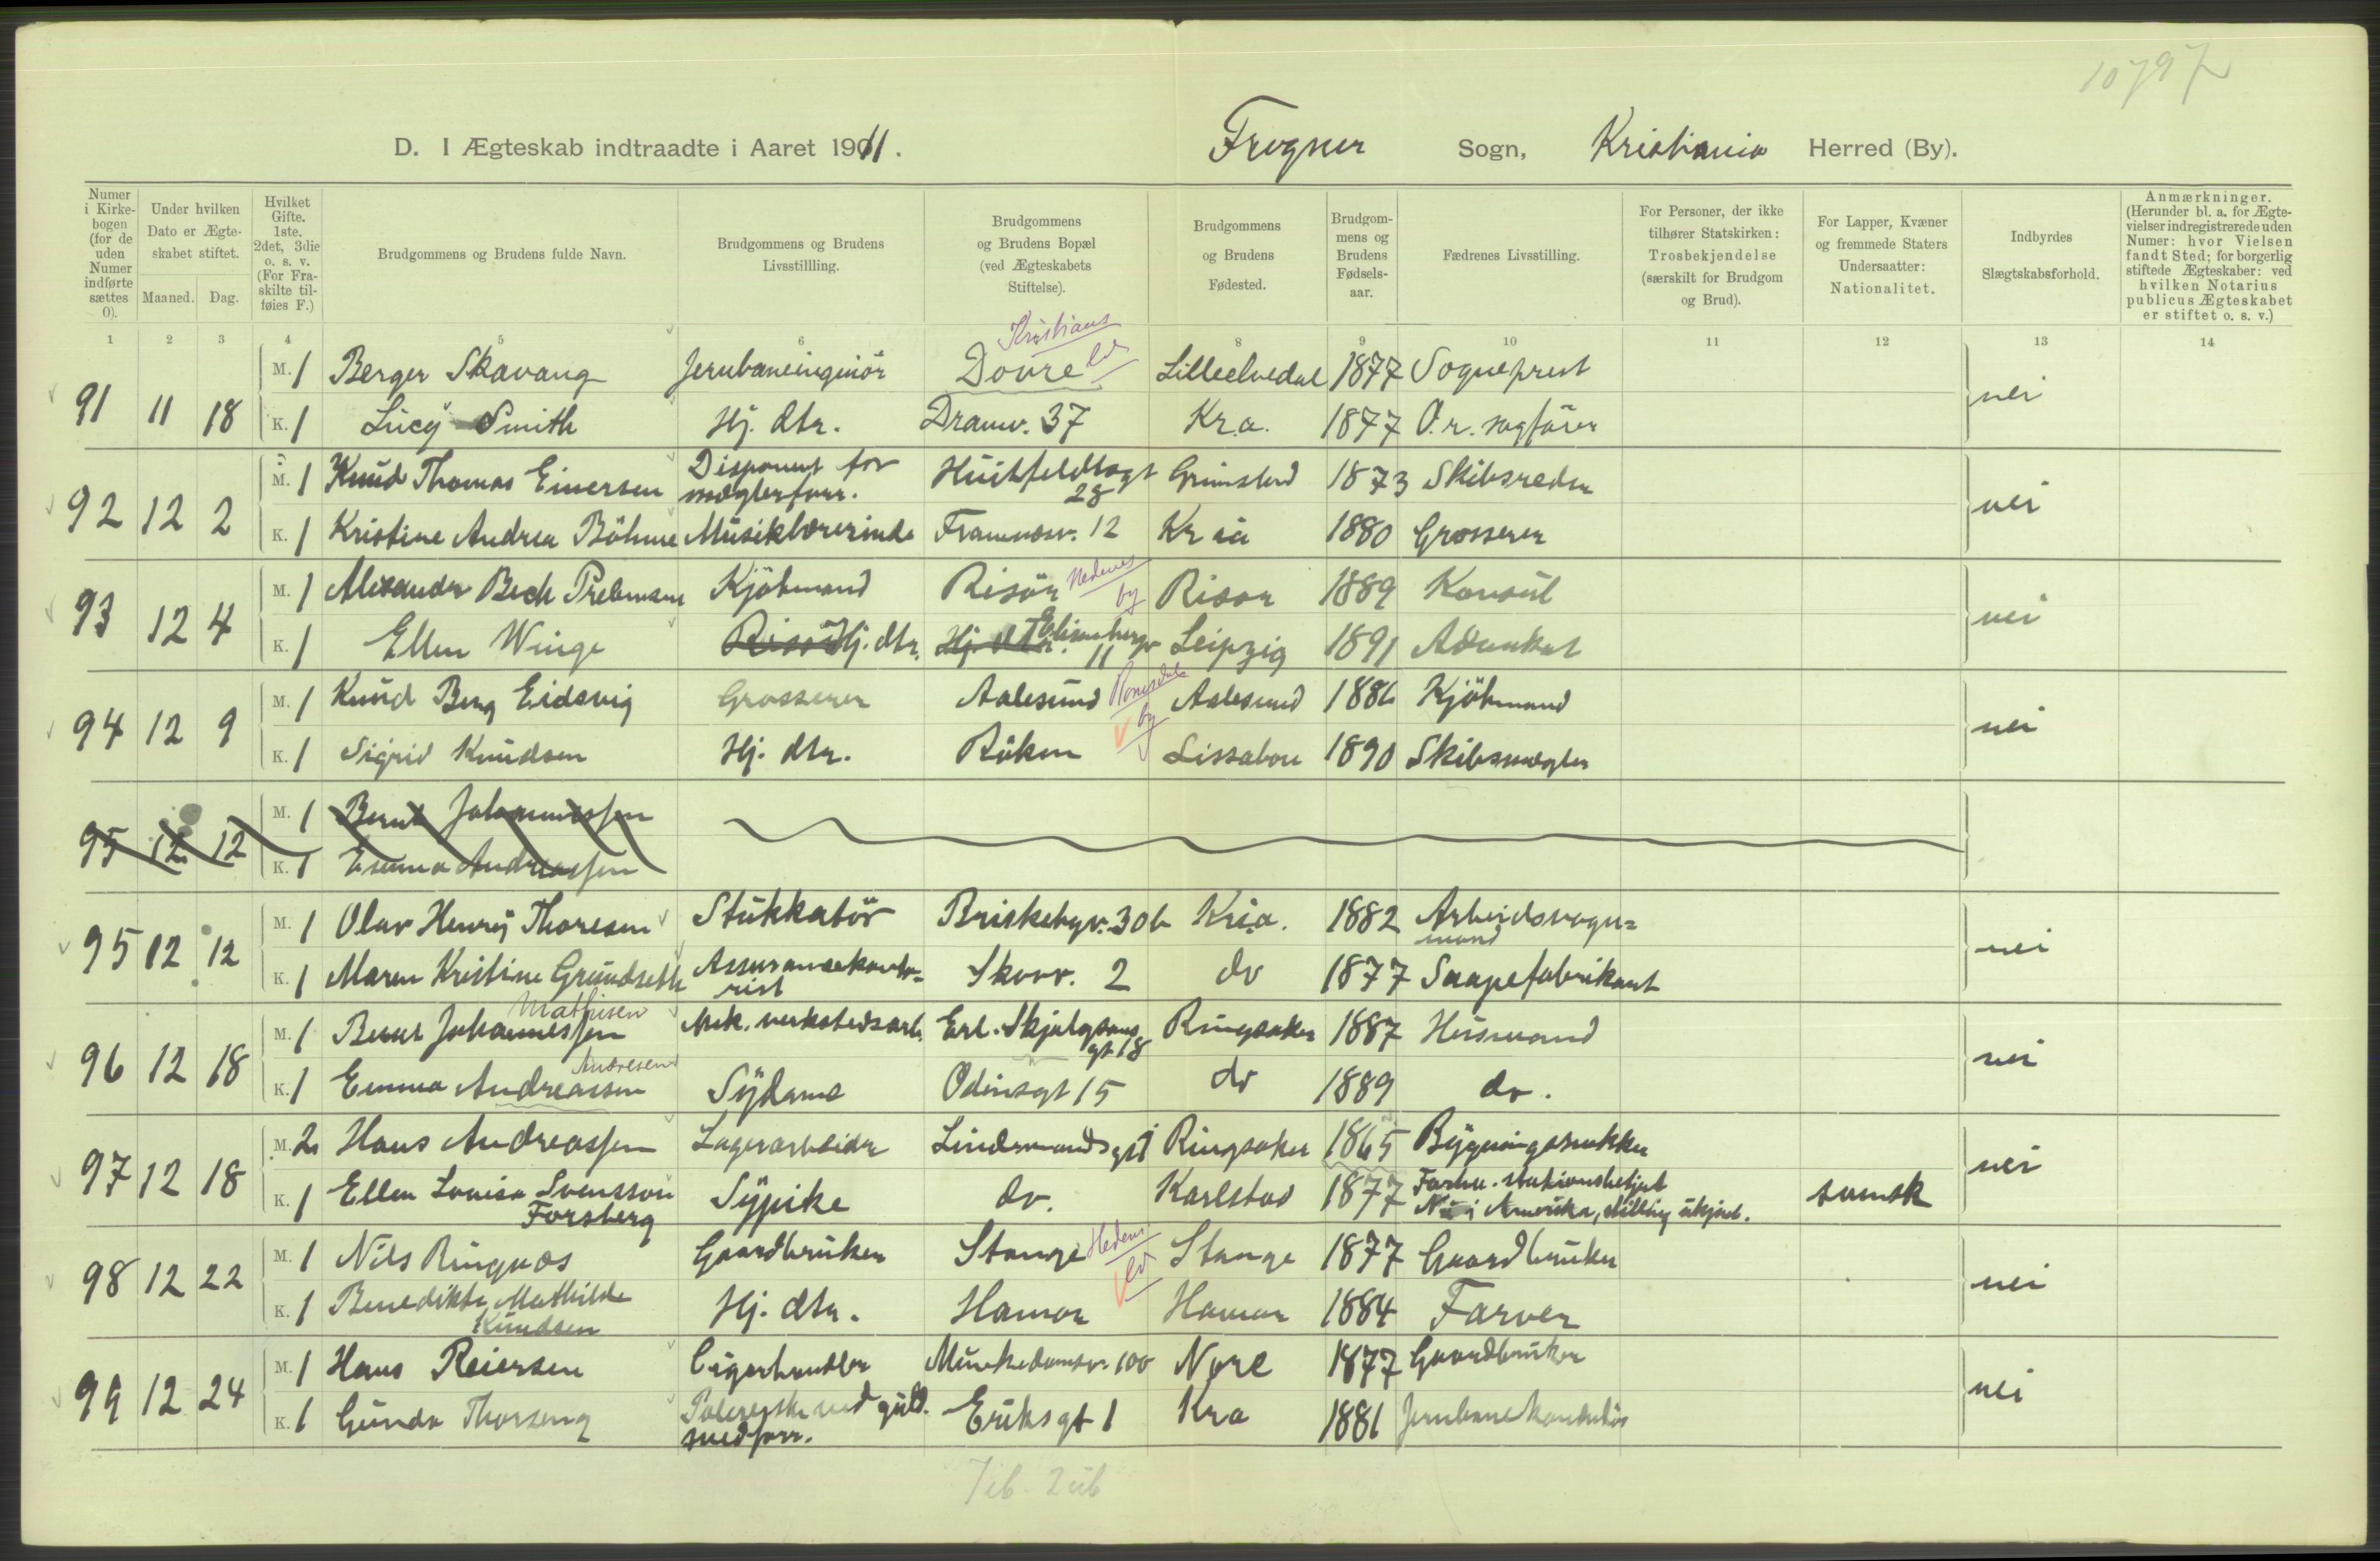 10797
D. I Ægteskab indtraadte i Aaret 1911. Frogner Sogn, Kristiania Herred (By).
Numer i Kirkebogen (for de uden Numer indførte sættes 0). Under hvilken Dato er Ægteskabet stiftet. Maaned. Dag. Hvilket Gifte. 1ste, 2det, 3die o. s. v. (For Fraskilte tilføies F.) Brudgommens og Brudens fulde Navn. Brudgommens og Brudens Livsstillling. Brudgommens og Brudens Bopæl (ved Ægteskabets Stiftelse). Brudgommens og Brudens Fødested. Brudgommens og Brudens Fødselsaar. Fædrenes Livsstilling. For Personer, der ikke tilhører Statskirken: Trosbekjendelse (særskilt for Brudgom og Brud). For Lapper, Kvæner og fremmede Staters Undersaatter: Nationalitet. Indbyrdes Slægtskabsforhold. Anmærkninger. (Herunder bl. a. for Ægtevielser indregistrerede uden Numer: hvor Vielsen fandt Sted; for borgerlig stiftede Ægteskaber: ved hvilken Notarius publicus Ægteskabet er stiftet o. s. v.)
1 2 3 4 5 6 8 9 10 11 12 13 14
Kristians
M. 1 Berger Skavang Jernbaneingeniör Dovre Lilleelvedal 1877 Sogneprest
91 11 18 nei
K. 1 Lucy Smith Hj. dtr. Dramv. 37 Kr.a. 1877 O.r. sagförer
M. 1 Knud Thomas Einersen Disponent for mæglerforr. Huitfeldtsgt 28 Grimstad 1873 Skibsreder
92 12 2 nei
K. 1 Kristine Andrea Böhme Musiklærerinde Framnæsv. 12 Kr ia 1880 Grosserer
M. 1 Alexander Bech Prebensen Kjöbmand Risör Nedenes by Risør 1889 Konsul
93 12 4 nei
K. 1 Ellen Winge Risör Hj. dtr. Hj. dtr. 11 Leipzig 1891 Advokat
M. 1 Knud Berg Eidsvig Grosserer Aalesund Romsdals by Aalesund 1886 Kjöbmand
94 12 9 nei
K. 1 Sigrid Knudsen Hj. dtr. Röken Lissabon 1890 Skibsmægler
M. 1 Bernt Johannessen
95 12 12
K. 1 Emma Andreassen
M. 1 Olav Henry Thoresen Stukkatör Briskebyv. 30b Kria. 1882 Arbeidsvogn=
mand
95 12 12 nei
K. 1 Maren Kristine Grundseth Assurancekonto=
rist Skovv. 2 do 1877 Saapefabrikant
Mathisen
M. 1 Bernt Johannessen Mek. verkstedsarb. Erl. Skjalgsøns gt 18 Ringsaker 1887 Husmand
96 12 18 nei
Andresen
K. 1 Emma Andreassen Sydame Odinsgt 15 do 1889 do.
M. 2 Hans Andreassen Lagerarbeider Ringsaker 1865 Bygningssnekker
97 12 18 nei
K. 1 Ellen Lovisa Svensson Forsberg Sypike do. Karlstad 1877 Forhv. stationsbetjent
Nu i Amerika, stilling ukjent. svensk
M. 1 Nils Ringnæs Gaardbruker Stange Hedem. Stange 1877 Gaardbruker
98 12 22 nei
K. 1 Benedikte Mathilde Knudsen Hj. dtr. Hamar Hamar 1884 Farver
M. 1 Hans Reiersen Cigarhandler Munkedamsv. 100 Nore 1877 Gaardbruker
99 12 24 nei
K. 1 Gunda Thorseng Polererske ved guld.
smedforr. Eriksgt 1 Kra 1881 Jernbanekonduktör